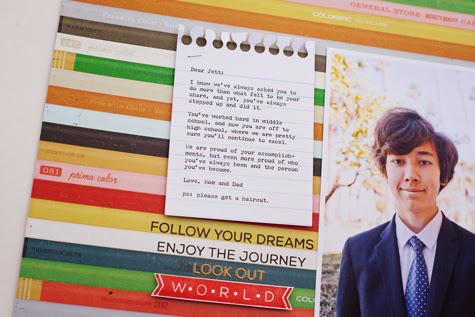 Franklin Color
GENERAL STORE
COLORIFIC
prima color
Franklin Color
081 prima color
Dear Jett:
I know we've always asked you to
do more than what felt to be your
share, and yet, you've always
stepped up and did it.
You've worked hard in middle
school, and now you are off to
high school, where we are pretty
sure you'll continue to excel.
We are proud of your accomplish-
ments, but even more proud of who
you've always been and the person
you've become.
Love, Mom and Dad
ps: please get a haircut.
FOLLOW YOUR DREAMS
ENJOY THE JOURNEY
LOOK OUT
WORLD